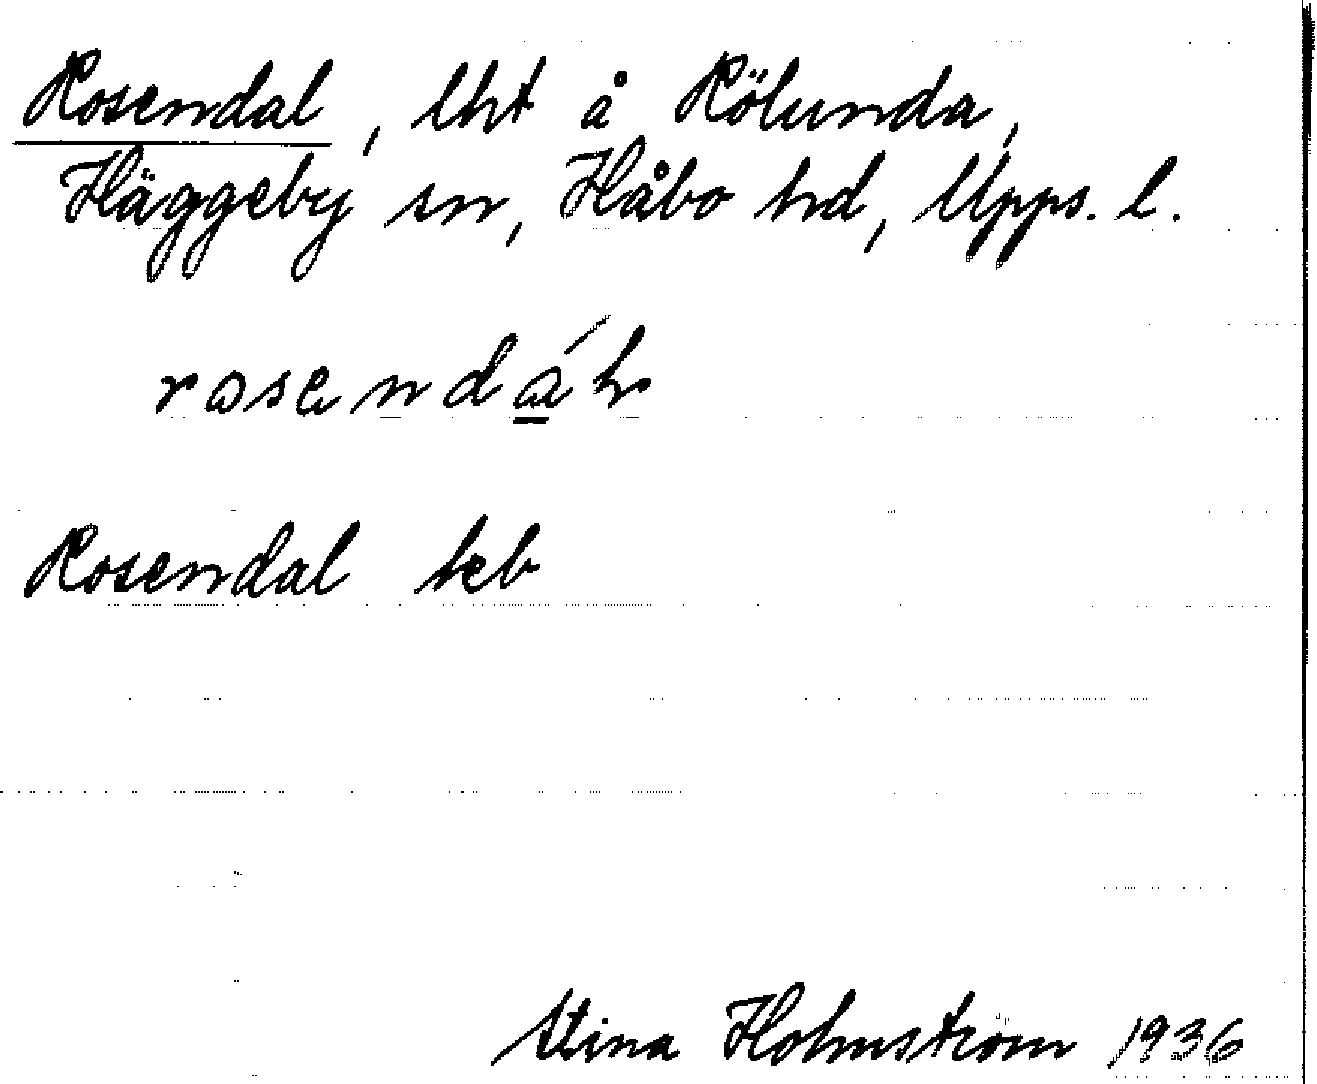 Rosendal, lht å Rölunda,
Häggeby sn, Håbo hd, Upps. l.
rosendál
Rosendal keb
Stina Holmström 1936